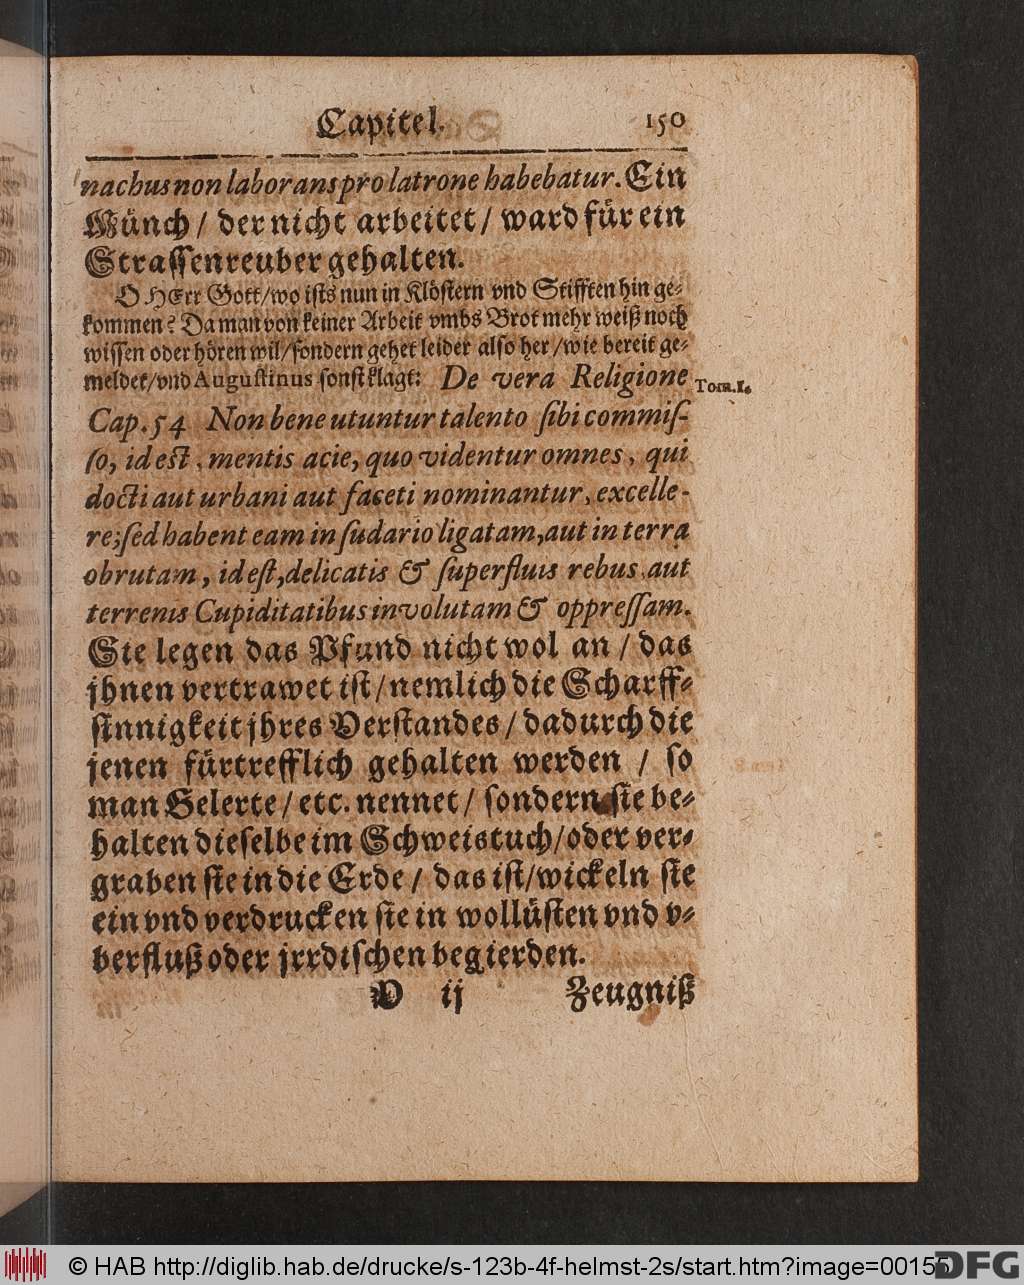 Capitel. 150
nachus non laborans pro latrone habebatur. Ein
Münch / der nicht arbeitet / ward für ein
Strassenreuber gehalten.
O HErr Gott / wo ists nun in Klöstern vnd Stifften hin ge-
kommen? Da man von keiner Arbeit vmbs Brot mehr weiß noch
wissen oder hören wil / sondern gehet leider also her / wie bereit ge-
meldet / vnd Augustinus sonst klagt: De vera Religione Tom. I.
Cap. 54 Non bene utuntur talento sibi commis-
so, id est, mentis acie, quo videntur omnes, qui
docti aut urbani aut faceti nominantur, excelle-
re; sed habent eam in sudario ligatam, aut in terra
obrutam, id est, delicatis & superfluis rebus, aut
terrenis Cupiditatibus involutam & oppressam.
Sie legen das Pfund nicht wol an / das
jhnen vertrawet ist / nemlich die Scharff-
sinnigkeit jhres Verstandes / dadurch die
jenen fürtrefflich gehalten werden / so
man Gelerte / etc. nennet / sondern sie be-
halten dieselbe im Schweistuch / oder ver-
graben sie in die Erde / das ist / wickeln sie
ein vnd verdrucken sie in wollüsten vnd v-
berfluß oder jrrdischen begierden.
V ij Zeugniß
© HAB http://diglib.hab.de/drucke/s-123b-4f-helmst-2s/start.htm?image=00155
DFG